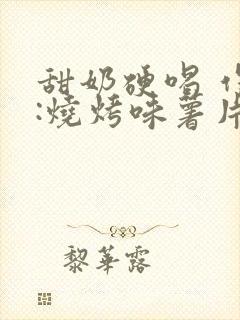 甜奶硬唱
:燒烤味薯片
黎華露